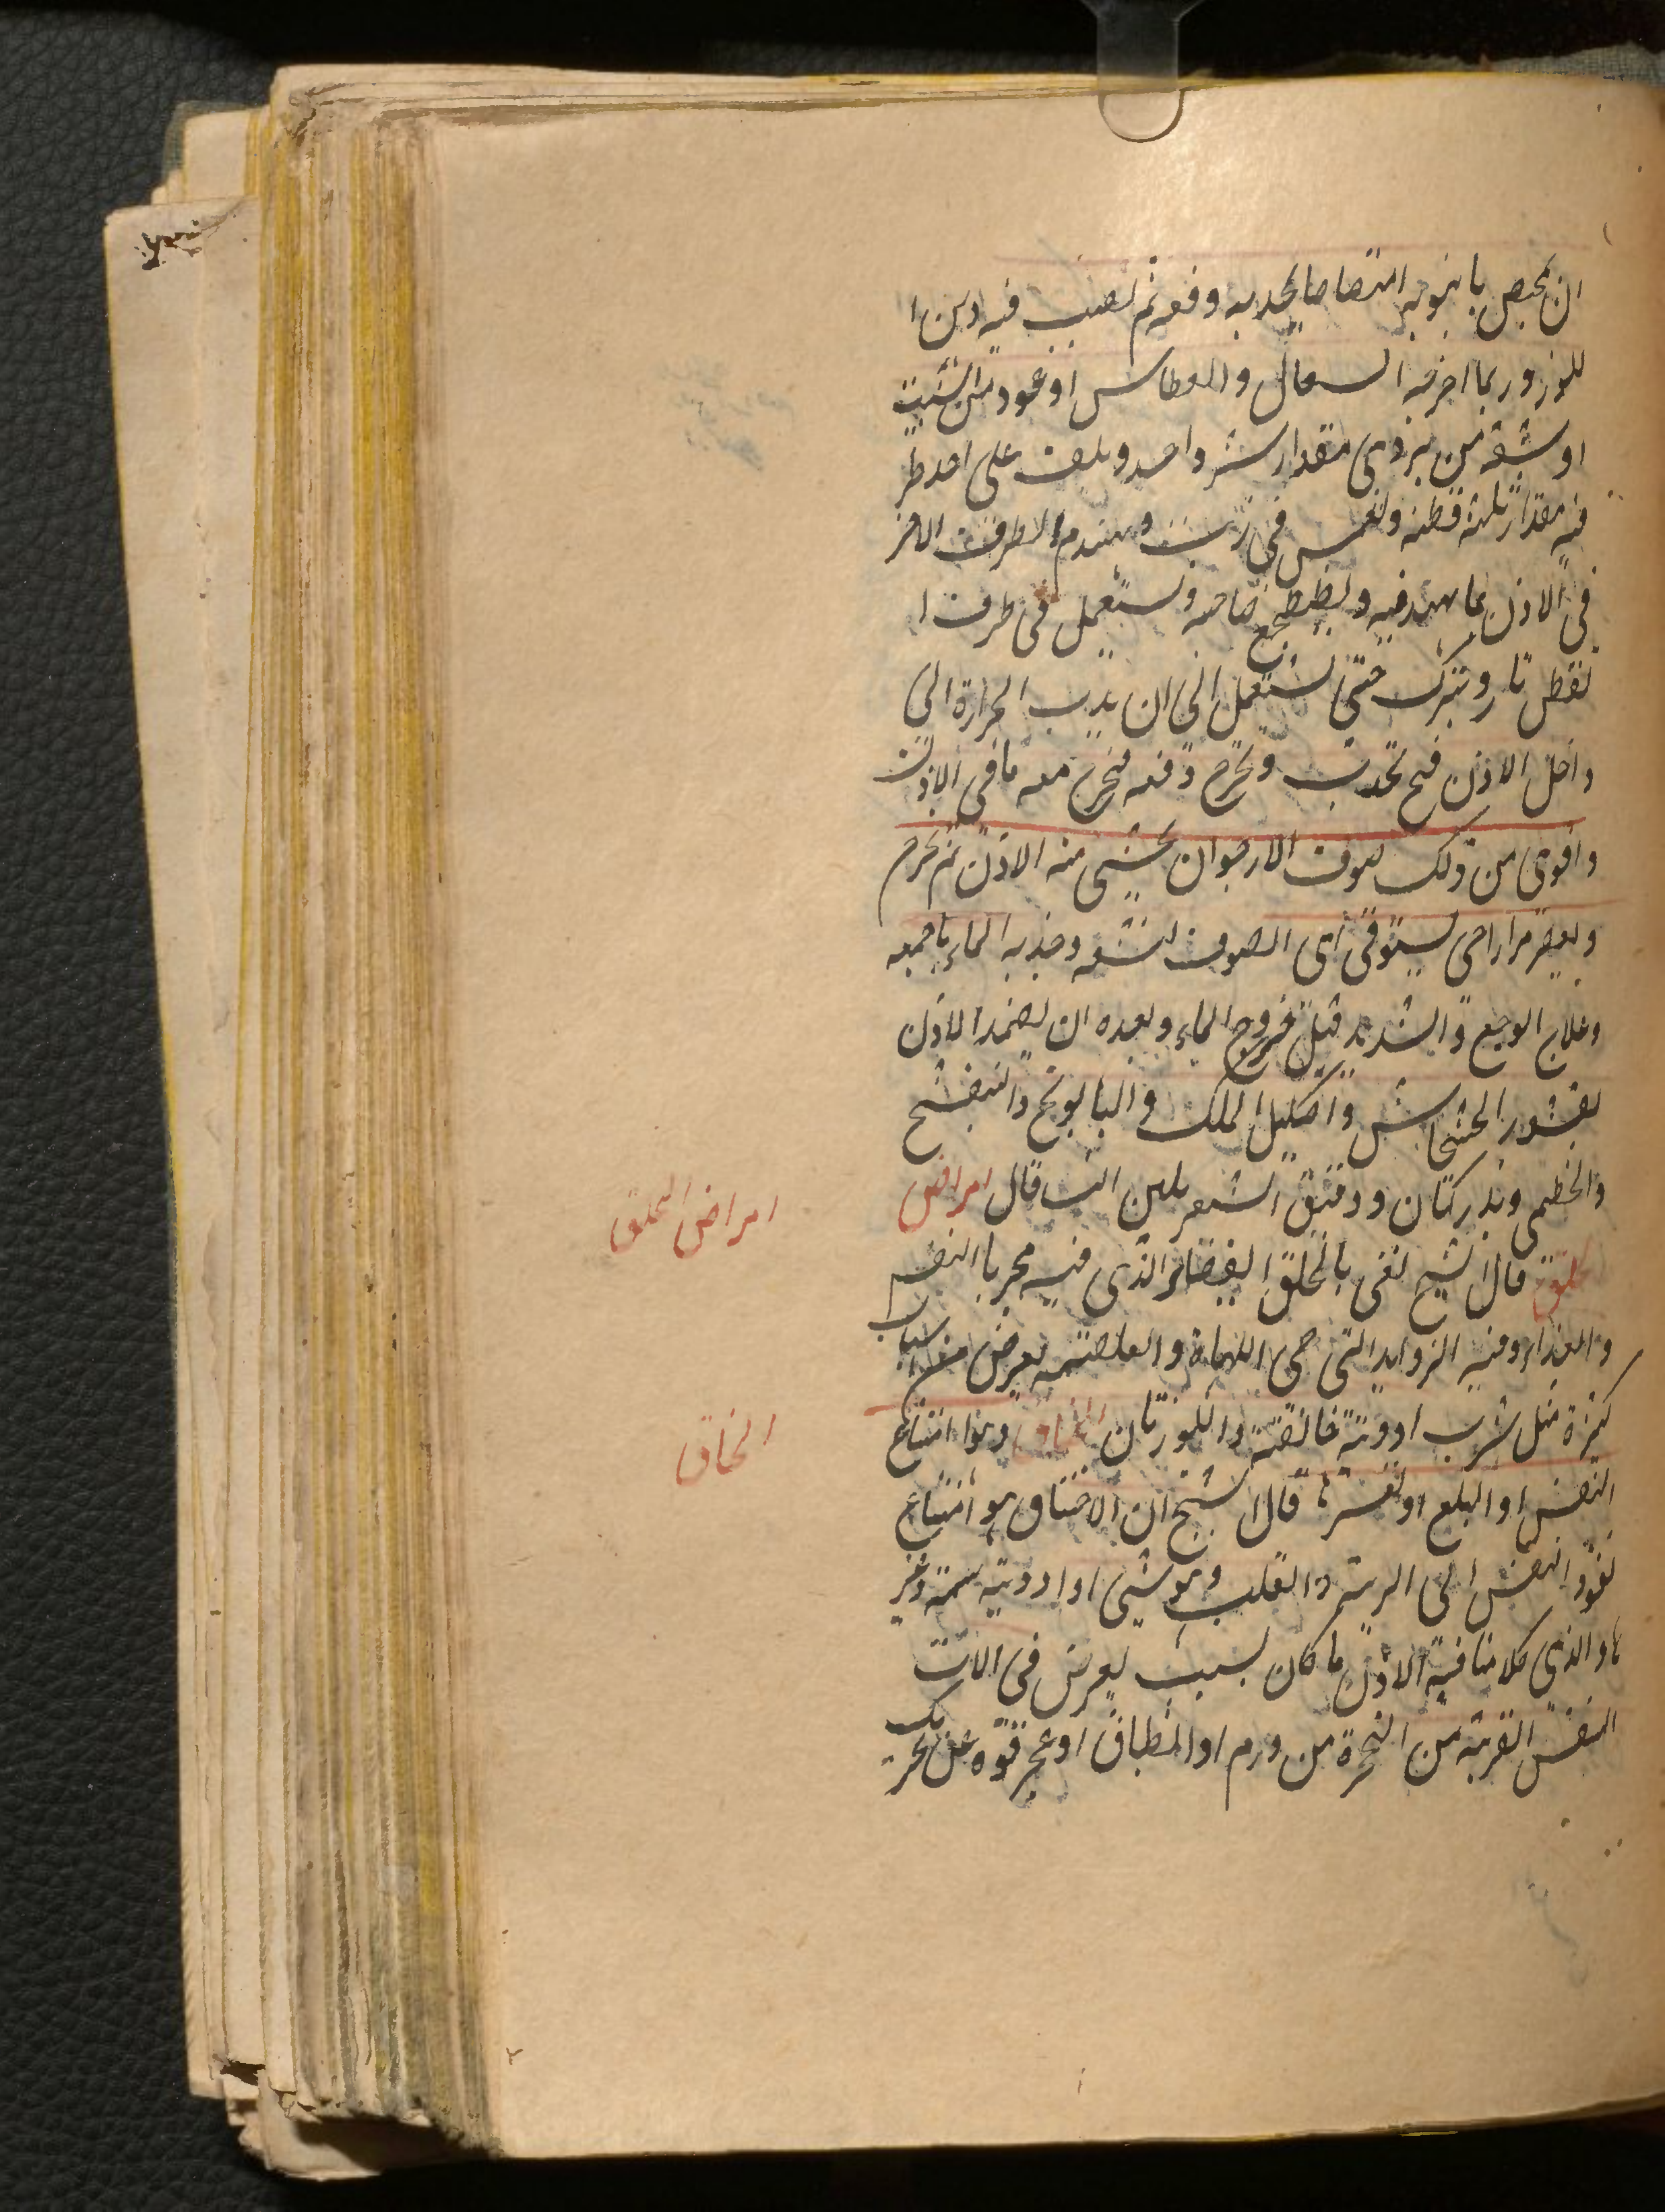 ان يمص بانبوبه امتصاصا يجذبه دفعه ثم يصب فيه دهن ا
للوز وربما اخرجه السعال والعطاس او عود من الشبت
او شبقه من بردى مقدار شبر واحد ويلف على احد طر
فيه مقدار ثلثه قطنه ويغمس فى زيت ويهندم الطرف الاخر
فى الاذن بما يهند فيه ويضطجع صاحبه ويشتعل فى طرف ا
لقطن نار ويترك حتى يشتعل الى ان يدب الحرارة الى
داخل الاذن فح تجذب وتخرج دفعه فيخرج معه ما فى الاذن
واقوى من ذلك صوف الارجوان يحشى منه الاذن ثم يخرج
ويعصر مرارا حتى يستوفى اى الصوف نشفه وجذبه الماء باجمعه
وعلاج الوجع والشديد قبل خروج الماء وبعده ان يضمد الاذن
بقشور الخشخاش واكليل الملك والبابونج والبنفسج
والخطمى وبذر كتان ودقيق الشعير بلبن التب قال امراض
الحلق قال الشيخ نعنى بالحلق الفضاء الذى فيه مجريا النفس
والغذاء ومنه الزوايد التى هى اللهاة والغلصمه يعرض من اسباب
كثيرة مثل شرب ادوية خانقة واللوزتان الخناق وهو امتناع
النفس او البلع او تعسرها قال الشيخ ان الاختناق هو امتناع
نفوذ النفس الى الرية والقلب وهو شىء او ادوية سمية وغير
ها والذى كلامنا فيه الاذن ما كان بسبب يعرض فى الات
النفس القريبة من الحنجرة من ورم او انطباق او عجز قوة عن تحريك
امراض الحلق
الخناق